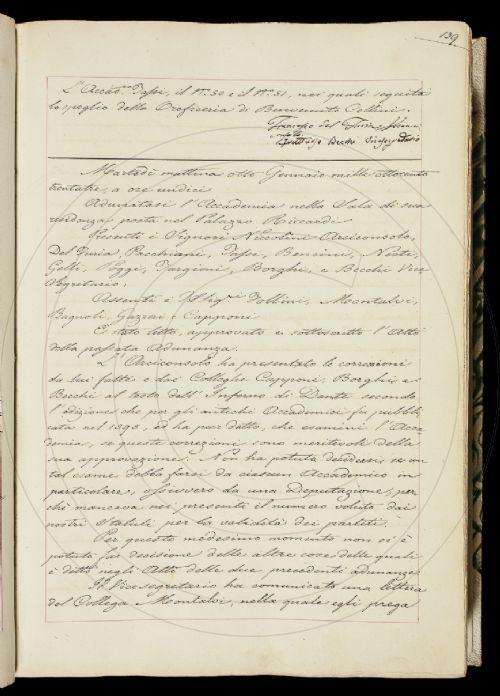 139
L'Accad.co Tassi, il N.o 30 e il N.o 31, nei quali seguita
lo spoglio della Oreficeria di Benvenuto Cellini.
Francesco del Furia
Fruttuoso Becchi Vicesegretario
Martedì mattina otto Gennaio mille ottocento
trentatre, a ore undici
Adunatasi l'Accademia nella Sala di sua
residenza posta nel Palazzo Riccardi
Presenti i Signori Niccolini Arciconsolo,
Del Furia, Pacchiani, Tassi, Bencini, Nesti,
Gelli, Poggi, Targioni, Borghi, e Becchi Vice
Segretario.
Assenti i Sig.ri Follini, Montalvi,
Bagnoli, Gazzeri e Capponi
È stato letto, approvato e sottoscritto l'Atto
della passata Adunanza.
L'Arciconsolo ha presentato le correzioni
da lui fatte e dai Colleghi Capponi, Borghi e
Becchi al testo dell'Inferno di Dante secondo
l'edizione che per gli antichi Accademici fu pubbli
cata nel 1595, ed ha perciò detto, che esamini l'Acca
demia, se queste correzioni sono meritevoli della
sua approvazione. Non ha potuto decidersi se un
tal esame debba farsi da ciascun Accademico in
particolare, ossivvero da una Deputazione, per
chè mancava nei presenti il numero voluto dai
nostri Statuti per la validità dei partiti.
Per questo medesimo momento non si è
potuto far decisione delle altre cose delle quali
è detto negli Atti delle due precedenti adunanze
Il Vicesegretario ha comunicato una lettera
del Collega Montalvi, nella quale egli prega